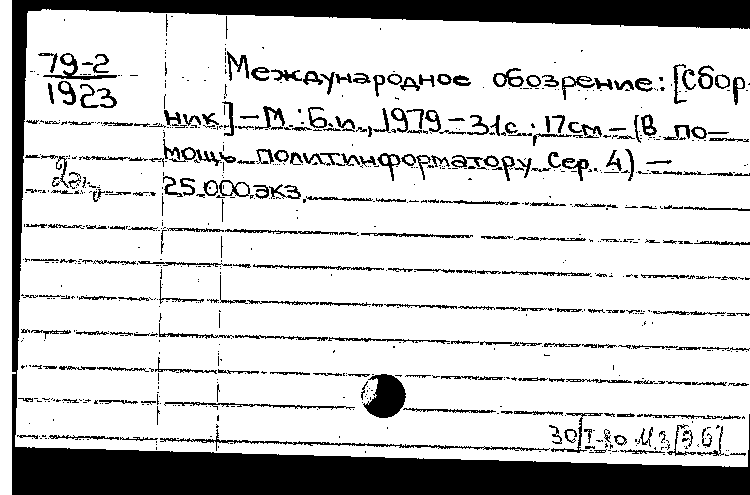 79-2
1923
Международное обозрение: [Сбор-
ник] - М. : Б.и., 1979 - 31с ; 17см - (В по-
мощь политинформатору Сер. 4) -
2эк
25.000экз.
30/I-80 М.З